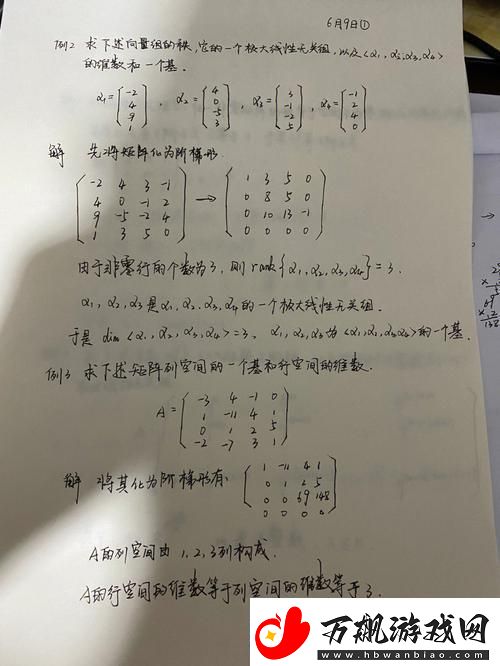 6月9日①
例2 求下述向量组的秩,它的一个极大线性无关组,以及<α₁,α₂,α₃,α₄>
的维数和一个基.
α₁=(-2 4 9 1), α₂=(4 0 -5 3), α₃=(3 -1 -2 5), α₄=(-1 2 4 0)
解 先将矩阵化为阶梯形.
(-2 4 3 -1 → (1 3 5 0
4 0 -1 2 0 8 5 0
9 -5 -2 4 0 10 13 -1
1 3 5 0) 0 0 0 0)
由于非零行的个数为3,则rank{α₁,α₂,α₃,α₄}=3.
α₁,α₂,α₃是α₁,α₂,α₃,α₄的一个极大线性无关组.
于是 dim<α₁,α₂,α₃,α₄>=3, α₁,α₂,α₃为<α₁,α₂,α₃,α₄>的一个基.
例3 求下述矩阵列空间的一个基和行空间的维数.
A=(-3 4 -1 0
1 -11 4 1
0 1 2 5
-2 -7 3 1)
解 将其化为阶梯形有 (1 -11 4 1
0 1 2 5
0 0 69 148
0 0 0 0)
A的列空间由1,2,3列构成.
A的行空间的维数等于列空间的维数等于3.
万飙游戏网
www.hbwanbiao.com